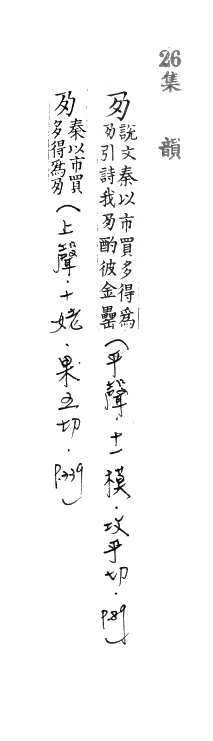 26集 韻
夃說文秦以市買多得為夃引詩我夃酌彼金罍(平聲.十一模.攻乎切.P.89)
夃秦以市買多得為夃(上聲.十姥.果五切.P.339)